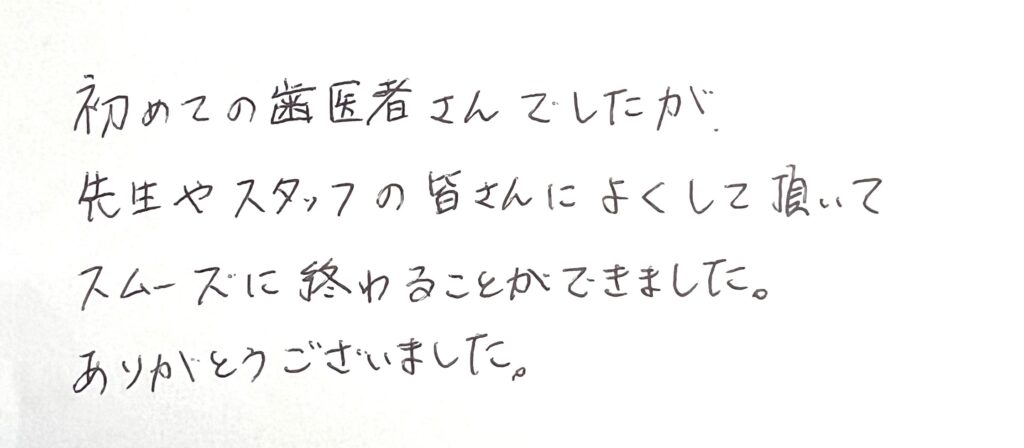 初めての歯医者さんでしたが、
先生やスタッフの皆さんによくして頂いて
スムーズに終わることができました。
ありがとうございました。